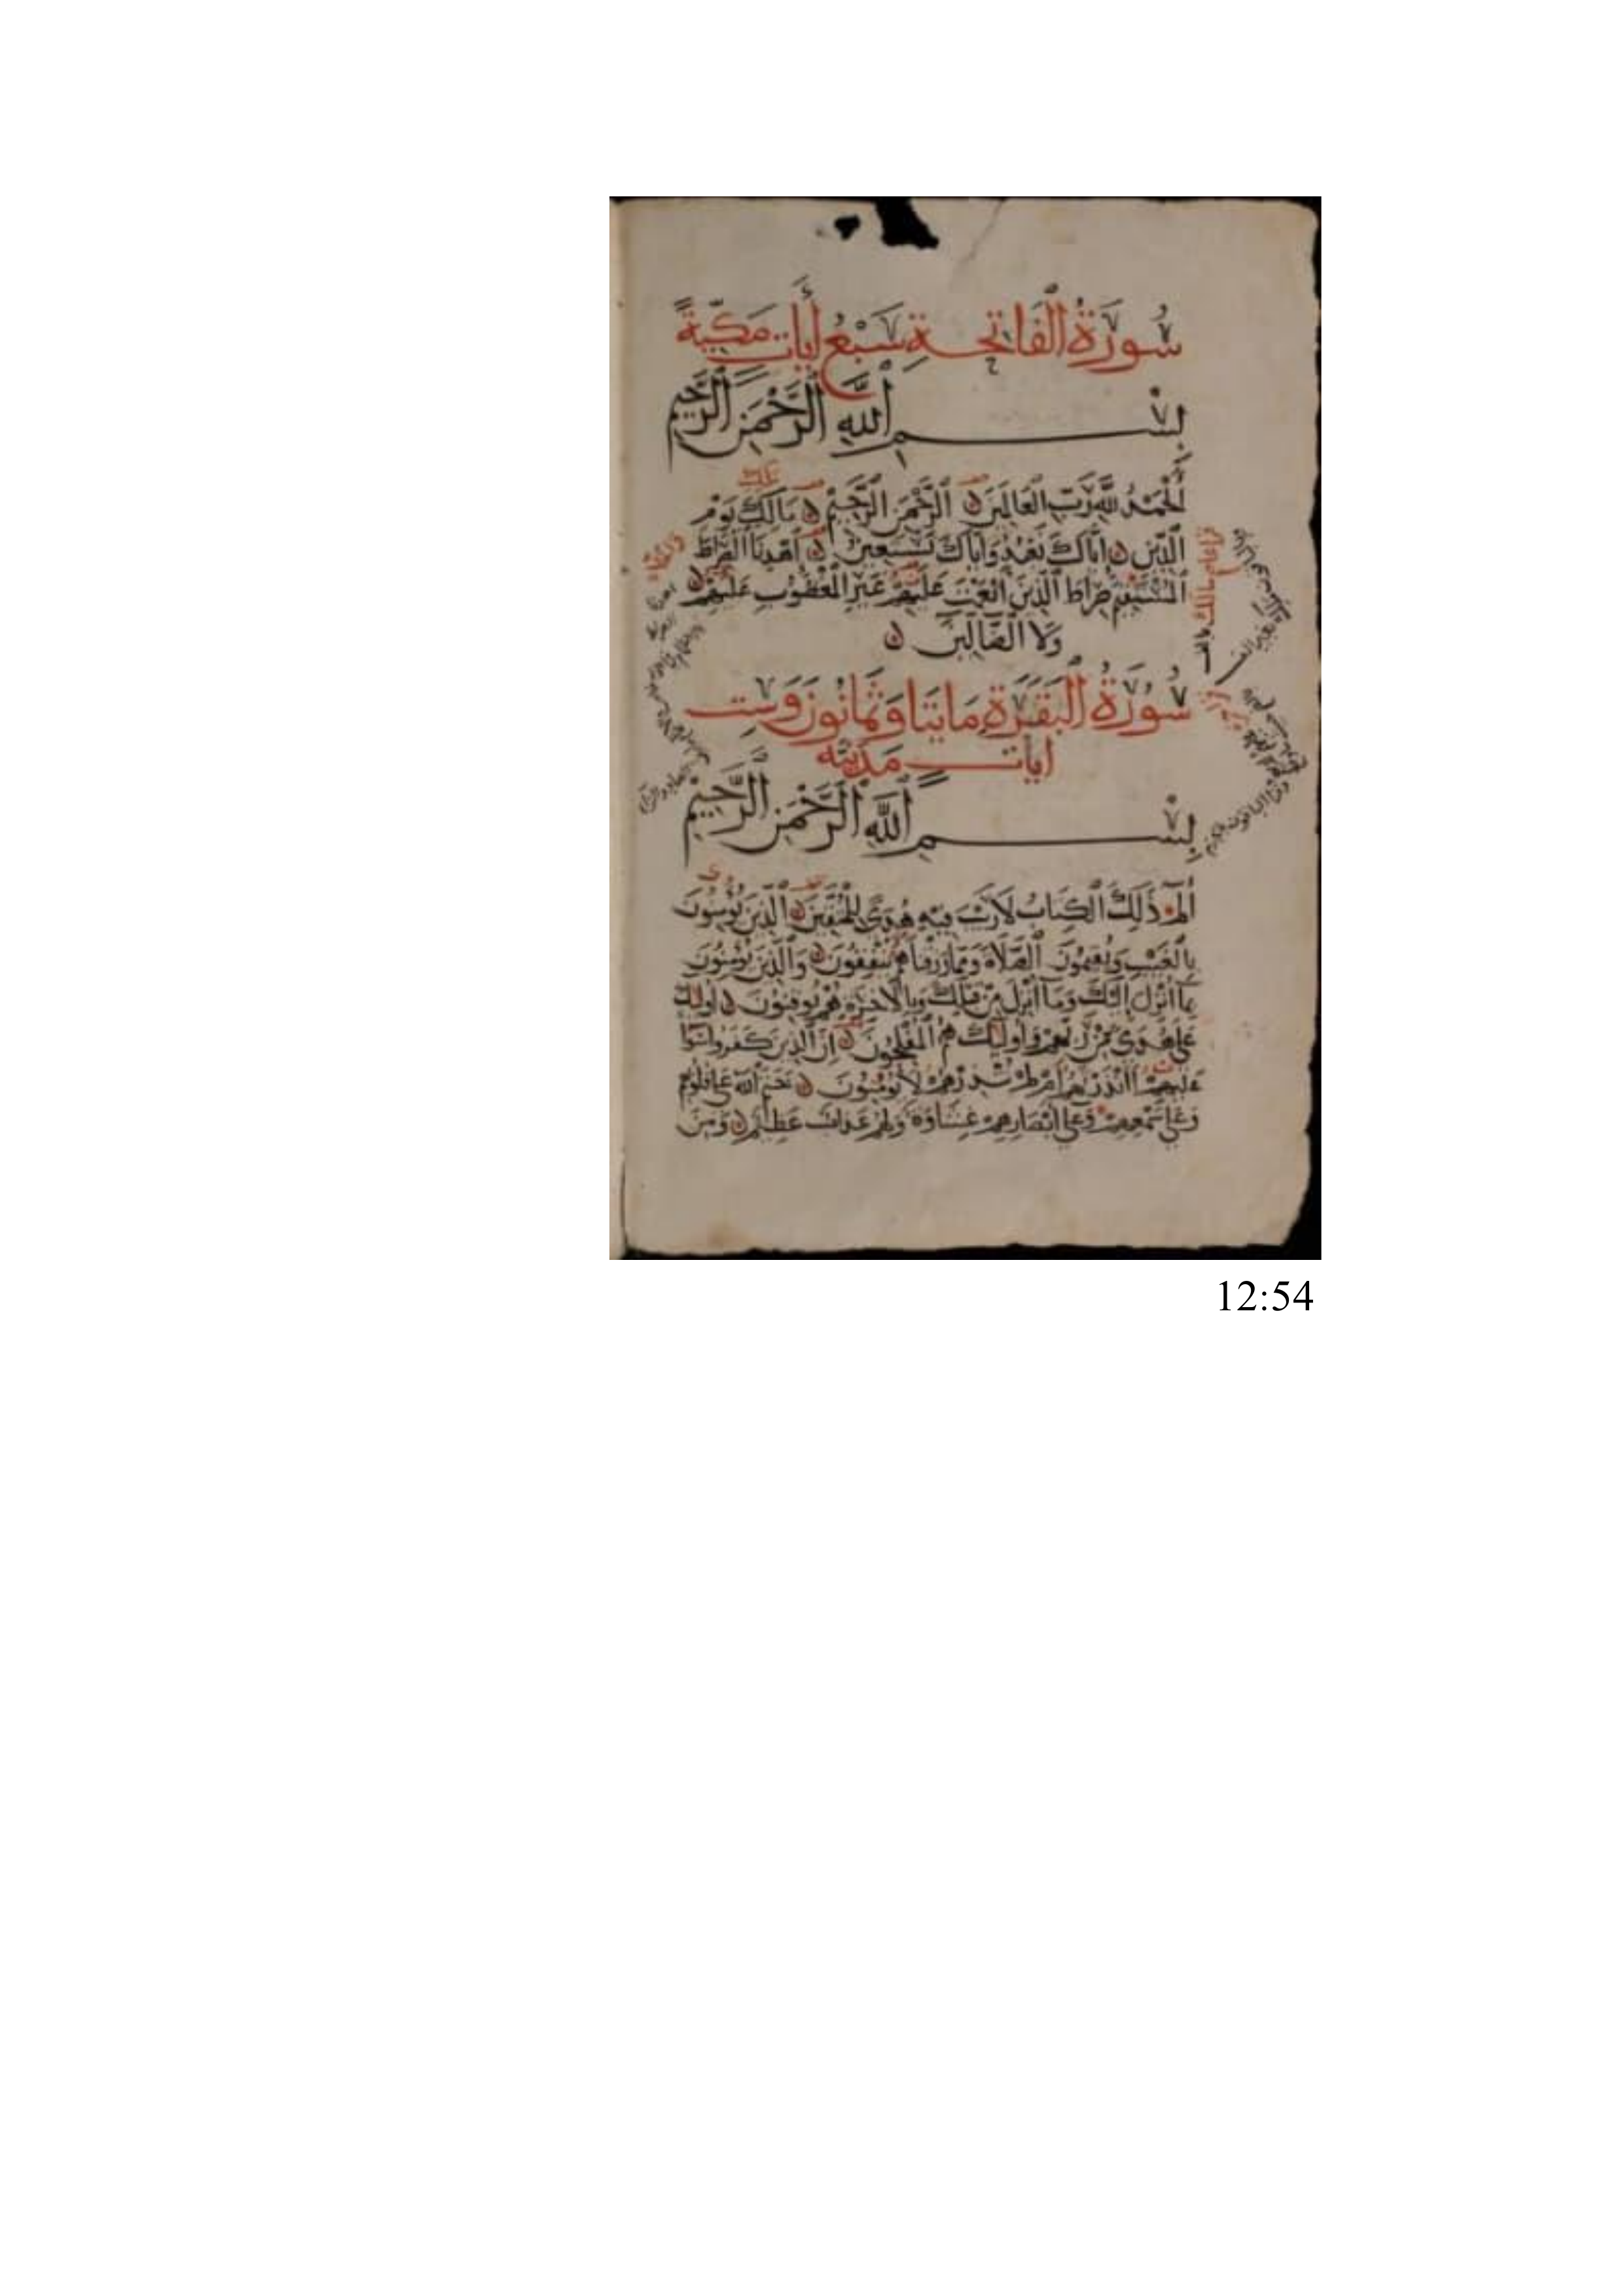 سُورَةُ الْفَاتِحَةِ سَبْعُ أَيَات مَكِّيَّةً
بِسْمِ اللَّهِ الرَّحْمَنِ الرَّحِيمِ
أَلْحَمْدُ لِلَّهِ رَبِّ الْعَالَمِينَ الرَّحْمَنِ الرَّحِيمِ مَالِكِ يَوْمِ
الدِّينِ إِيَّاكَ نَعْبُدُ وَإِيَّاكَ نَسْتَعِينُ اهْدِنَا الصِّرَاطَ
الْمُسْتَقِيمَ صِرَاطَ الَّذِينَ أَنْعَمْتَ عَلَيْهِمْ غَيْرِ الْمَغْضُوبِ عَلَيْهِمْ
وَلَا الضَّالِّينَ
سُورَةُ الْبَقَرَةِ مَايَتَا وَثَمَانُونَ وَسِت
ايات مَدَنِيَّه
بِسْمِ اللَّهِ الرَّحْمَنِ الرَّحِيمِ
الم ذَلِكَ الْكِتَابُ لَا رَيْبَ فِيهِ هُدًى لِلْمُتَّقِينَ الَّذِينَ يُؤْمِنُونَ
بِالْغَيْبِ وَيُقِيمُونَ الصَّلَاةَ وَمِمَّا رَزَقْنَاهُمْ يُنْفِقُونَ وَالَّذِينَ يُؤْمِنُونَ
بِمَا أُنْزِلَ إِلَيْكَ وَمَا أُنْزِلَ مِنْ قَبْلِكَ وَبِالْآخِرَةِ هُمْ يُوقِنُونَ أُولَئِكَ
عَلَى هُدًى مِنْ رَبِّهِمْ وَأُولَئِكَ هُمُ الْمُفْلِحُونَ إِنَّ الَّذِينَ كَفَرُوا سَوَاءٌ
عَلَيْهِمْ أَأَنْذَرْتَهُمْ أَمْ لَمْ تُنْذِرْهُمْ لَا يُؤْمِنُونَ خَتَمَ اللَّهُ عَلَى قُلُوبِهِمْ
وَعَلَى سَمْعِهِمْ وَعَلَى أَبْصَارِهِمْ غِشَاوَةٌ وَلَهُمْ عَذَابٌ عَظِيمٌ وَمِنَ
12:54